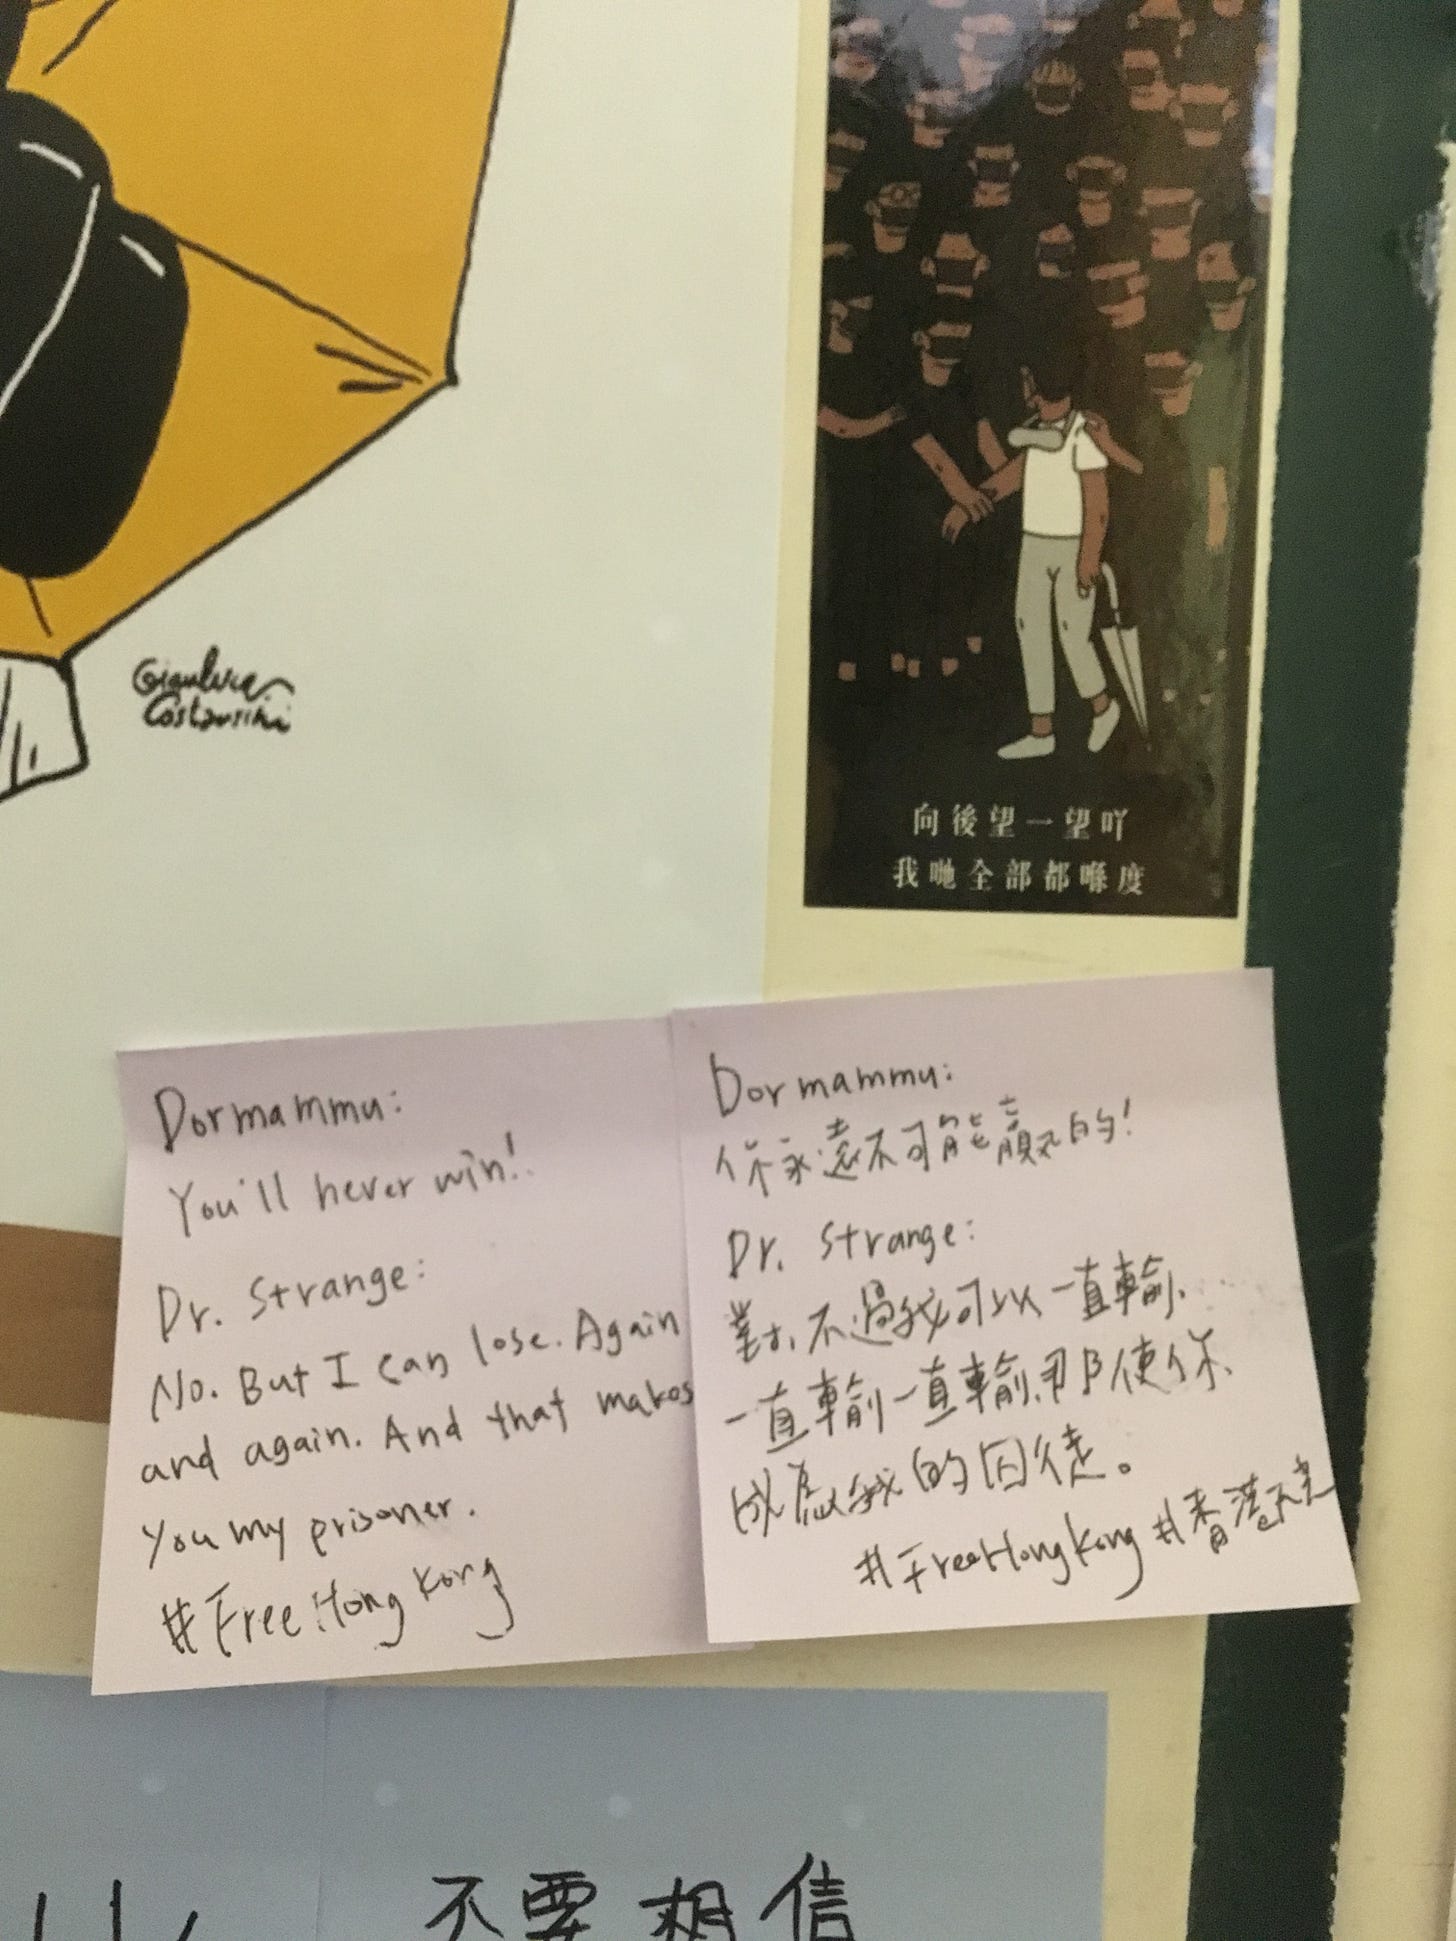 Gianluca
Costantini
向後望一望吖
我哋全部都喺度
Dormammu:
You'll never win!
Dr. Strange:
No. But I can lose. Again
and again. And that makes
you my prisoner.
#FreeHongKong
Dormammu:
你永遠不可能贏的!
Dr. Strange:
對、不過我可以一直輸、
一直輸一直輸、那使你
成為我的囚徒。
#FreeHongKong #香港
不要相信